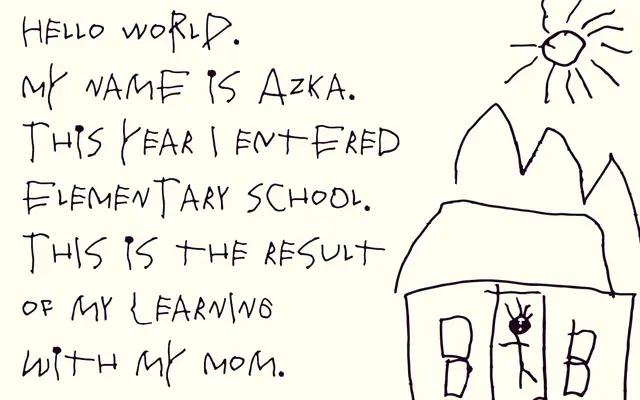 HELLO WORLD.
MY NAME IS AZKA.
THIS YEAR I ENTERED
ELEMENTARY SCHOOL.
THIS IS THE RESULT
OF MY LEARNING
WITH MY MOM.